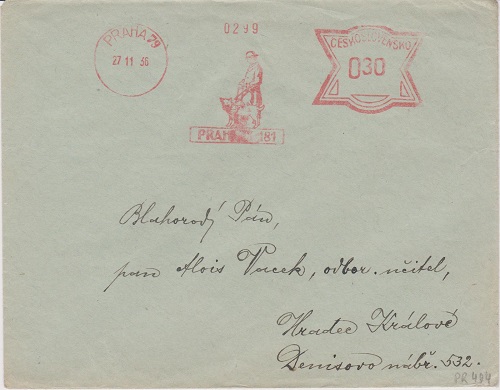 PRAHA 79
27 11 36
0299
ČESKOSLOVENSKO
030
PRAHA 181
Blahorodý Pán,
pan Alois Vacek, odbor. učitel,
Hradec Králové
Denisovo nábř. 532.
PR 484